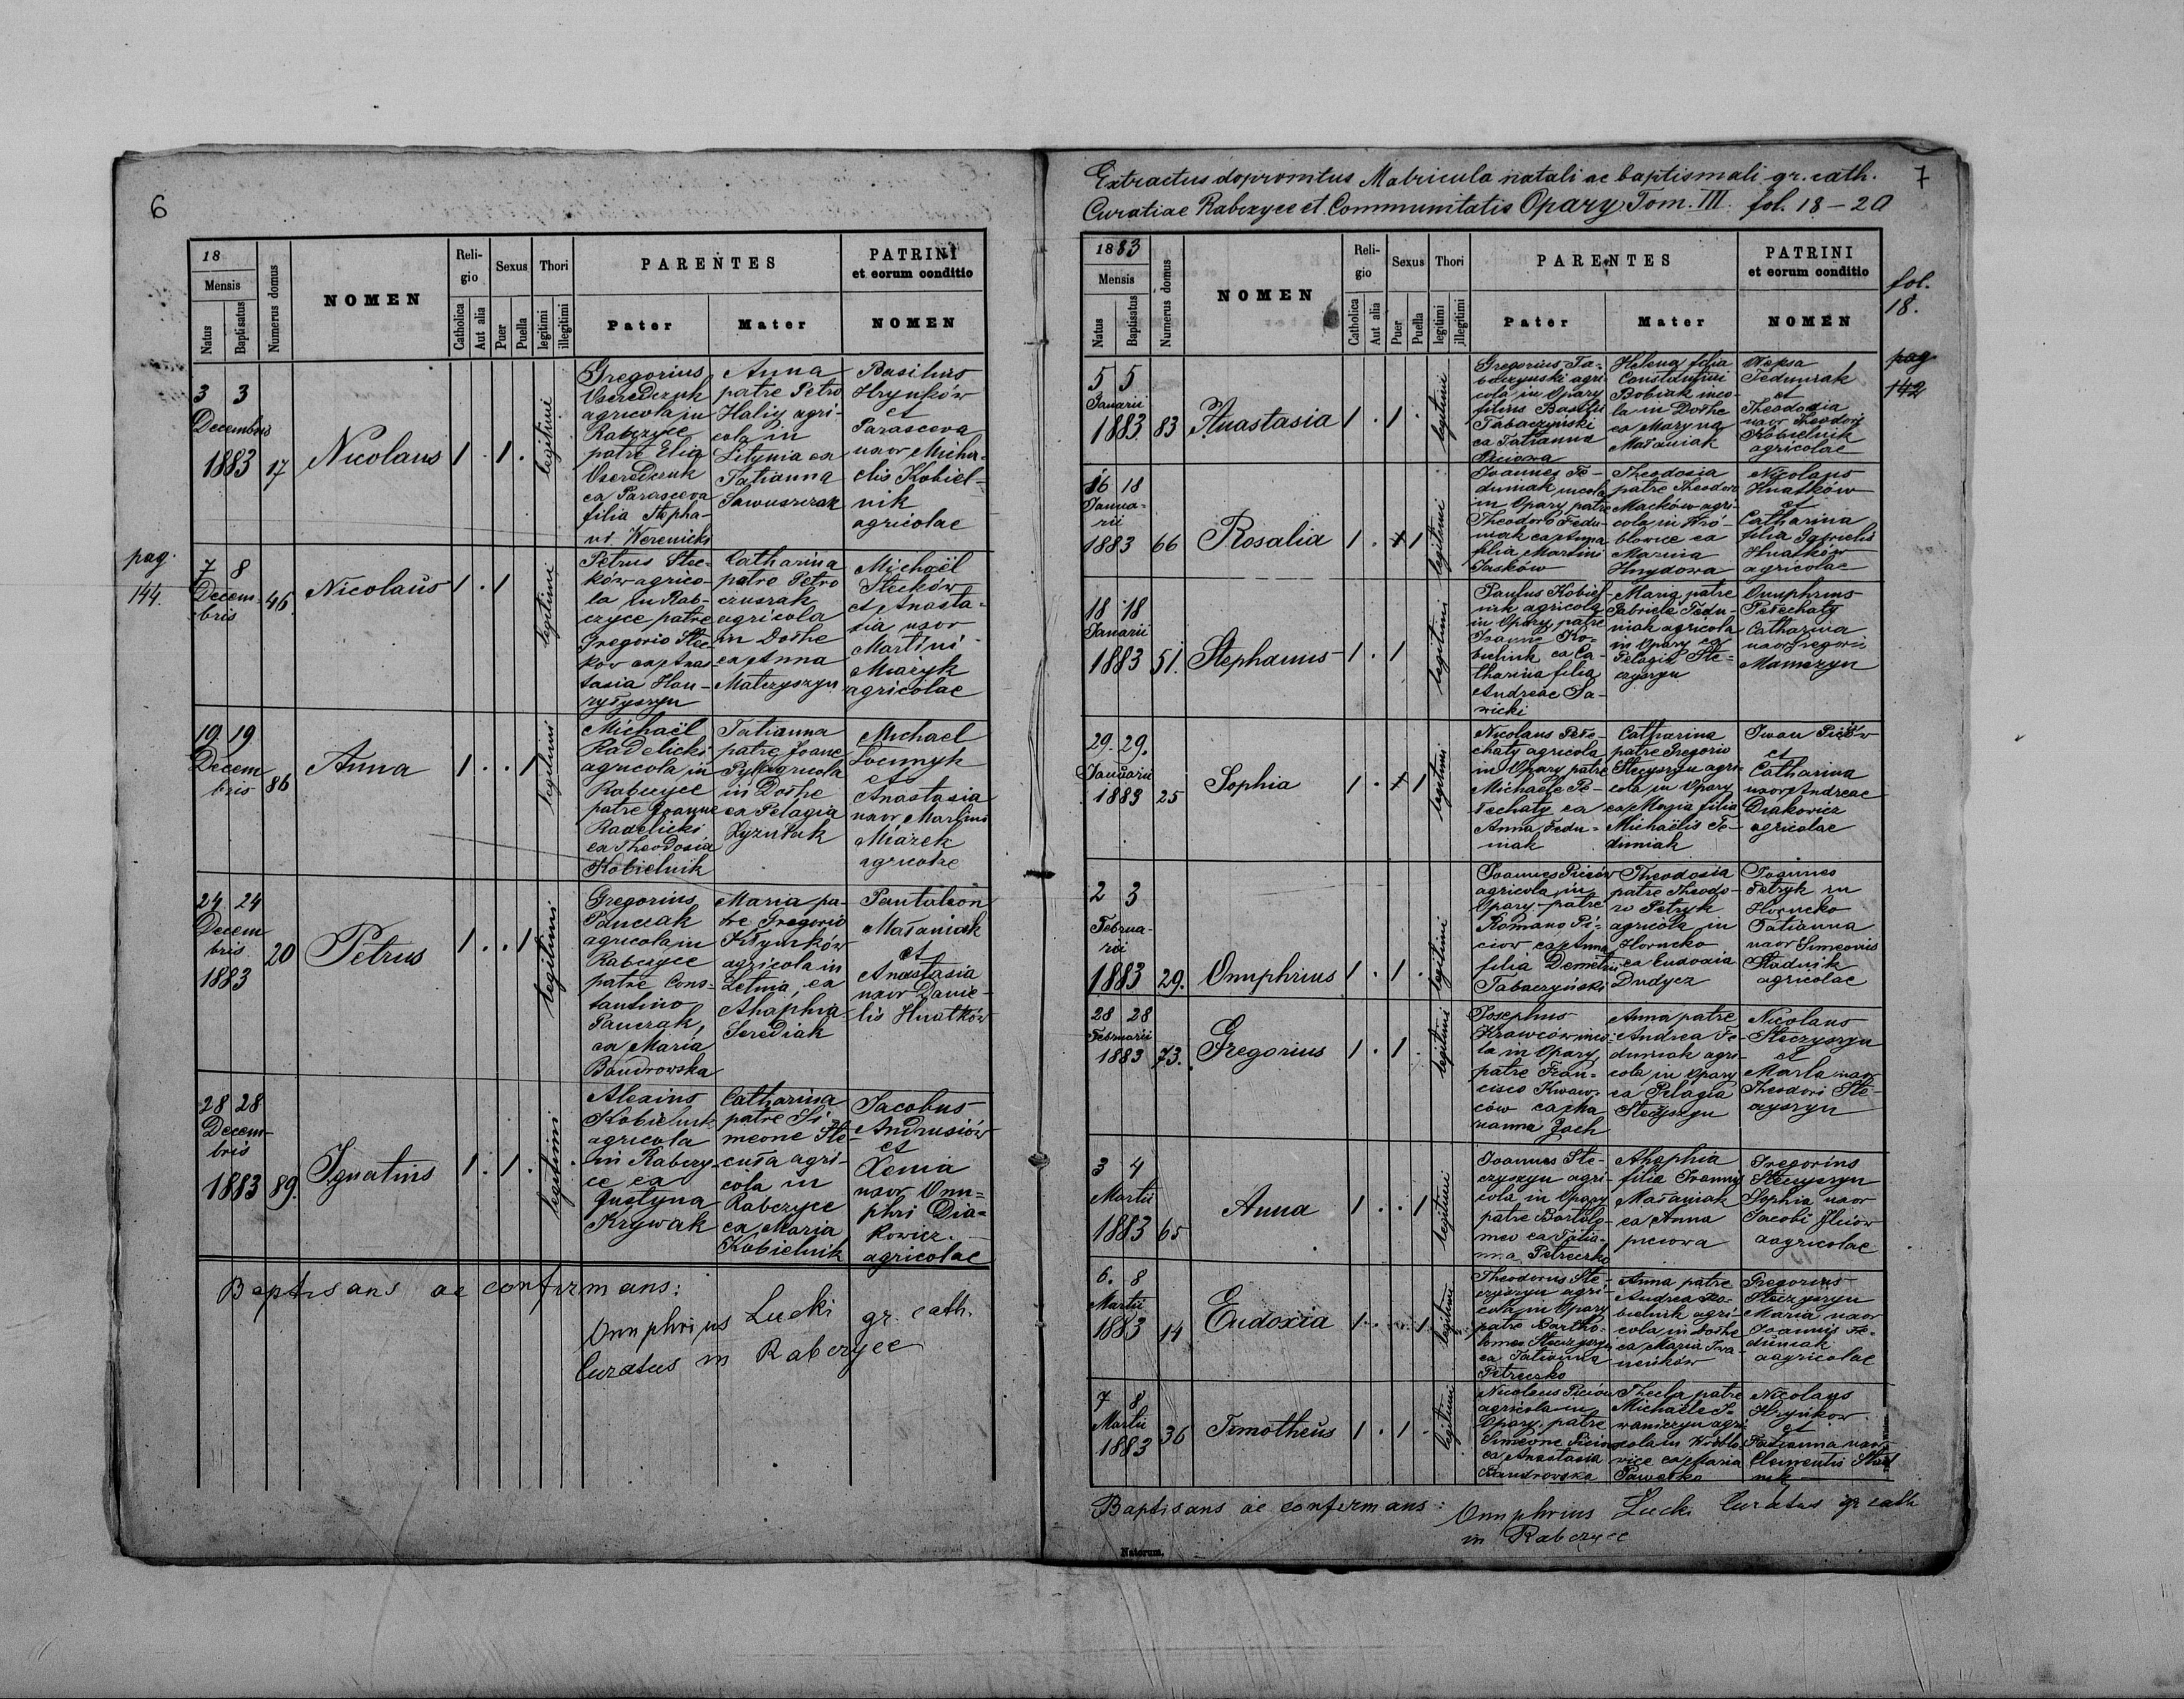 6
pag.
144.
18
Mensis
Natus
Baptisatus
Numerus domus
NOMEN
Reli-
gio
Catholica
Aut alia
Sexus
Puer
Puella
Thori
legitimi
illegitimi
PARENTES
Pater
Mater
PATRINI
et eorum conditio
NOMEN
3 3
Decembris
1883 17
Nicolaus
1 . 1 .
legitimi
Gregorius
agricola in
Rabczyce
patre Elia
ex Parasceva
filia Stepha-
ni Werenicki
Anna
patre Petro
Haliy agri-
cola in
Litynia ex
Tatianna
Basilius
Hrynków
et
Parasceva
uxor Micha-
elis Kobiel-
nik
agricolae
7 8
Decem-
bris
46
Nicolaus
1 . 1
legitimi
Petrus Stec-
ków agrico-
la in Rab-
czyce patre
Gregorio Stec-
ków ex Anas-
tasia Hau-
ryłyszyn
Catharina
patre Petro
agricola
in Dołhe
ex Anna
Matczyszyn
Michaël
Stecków
et Anasta-
sia uxor
Martini
Miazyk
agricolae
19. 19
Decem
bris
86
Anna
1 . . 1
legitimi
Michaël
Radelicki
agricola in
Rabczyce
patre Joanne
Radelicki
ex Theodosia
Kobielnik
Tatianna
patre Joane
Pyl agricola
in Dołhe
ex Pelagia
Michael
et
Anastasia
uxor Martini
Miazek
agricolae
24. 24
Decem
bris
1883
20
Petrus
1 . . 1
legitimi
Gregorius
Panczak
agricola in
Rabczyce
patre Cons-
tantino
Panczak,
ex Maria
Bandrowska
Maria pa-
tre Gregorio
agricola in
Letnia, ex
Ahaphia
Serediak
Pantaleon
Małaniak
et
Anastasia
uxor Danie-
lis Hnatków
28 28
Decem-
bris
1883 89.
Ignatius
1 . 1 .
legitimi
Alexius
Kobielnik
agricola
in Rabczy-
ce ex
Justyna
Krywak
Catharina
patre Si
meone Ste-
cuła agri-
cola in
Rabczyce
ex Maria
Kobielnik
Jacobus
Andrusiów
et
Xenia
uxor Onu-
phri Dia-
kowicz
agricolae
Baptisans ac confirmans:
Onuphrius Lucki gr. cath.
Curatus in Rabczyce
7
Extractus depromitus Matricula natali ac baptismali gr. cath.
Curatiae Rabczyce et Communitatis Opary Tom. III. fol. 18 - 20
fol.
18.
pag
142
1883
Mensis
Natus
Baptisatus
Numerus domus
NOMEN
Reli-
gio
Catholica
Aut alia
Sexus
Puer
Puella
Thori
legitimi
illegitimi
PARENTES
Pater
Mater
PATRINI
et eorum conditio
NOMEN
5 5
Januarii
1883. 83
Anastasia
1 . 1 .
legitimi
Gregorius Ta-
baczynski agri-
cola in Opary
filius Basilii
Tabaczyński
ex Tatianna
Piciowa
Helena filia
Constantini
Bobiak inco-
la in Dołhe
ex Maryna
Małaniak
Feduniak
et
Theodozia
uxor Theodori
Kobielnik
agricolae
16 18
Janua-
rii
1883 66
Rosalia
1 . 1
legitimi
Joannes Fe-
duniak incola
in Opary patre
Theodoro Fedu-
niak ex Anna
filia Martini
Jasków
Theodosia
patre Theodoro
Macków agri-
cola in Wró-
blowice ex
Marina
Hnydowa
Nicolaus
Hnatków
et
Catharina
filia Gabrielis
Hnatków
agricolae
18 18
Januarii
1883 51.
Stephanus
1 . 1
legitimi
Paulus Kobiel-
nik agricola
in Opary patre
Joanne Ko-
bielnik ex Ca-
tharina filia
Andreae Sa-
wicki
Maria patre
Gabriele Fedu-
niak agricola
in Opary ex
Pelagia Ste-
czyszyn
Onuphrius
Pełechaty
Catharina
uxor Gregorii
Mamczyn
29. 29.
Januarii
1883 25
Sophia
1 . 1
legitimi
Nicolaus Pełe-
chaty agricola
in Opary patre
Michaele Pe-
łechaty ex
Anna Fedu-
niak
Catharina
patre Gregorio
Steczyszyn agri-
cola in Opary
ex Maria filia
Michaëlis Fe-
duniak
Iwan Piciów
et
Catharina
uxor Andreae
Diakowicz
agricolae
2 3
Februa-
rii
1883 29.
Onuphrius
1 . 1 .
legitimi
Joannes Piciów
agricola in
Opary patre
Romano Pi-
ciow ex Anna
filia Demetrii
Tabaczyński
Theodosia
patre Theodo-
ro Petryk
agricola in
Horucko
ex Eudoxia
Dudycz
Joannes
Petryk in
Horucko
Tatianna
uxor Simeonis
Stadnik
agricolae
28 28
Februarii
1883 73.
Gregorius
1 . 1 .
legitimi
Josephus
Krawców inco-
la in Opary,
patre Fran-
cisco Kraw-
ców ex Ma
rianna Zach
Anna patre
Andrea Fe-
duniak agri-
cola in Opary
ex Pelagia
Steczyszyn
Nicolaus
Steczyszyn
et
Maria uxor
Theodori Ste-
czyszyn
3 4
Martii
1883 65
Anna
1 . . 1
legitimi
Joannes Ste-
czyszyn agri-
cola in Opary
patre Bartolo-
meo ex Tatia-
nna Petreczko
Ahaphia
filia Joannis
Małaniak
ex Anna
piciowa
Gregorius
Steczyszyn
Sophia uxor
Jacobi Iliciow
aagricolae
6. 8
Martii
1883 14
Eudoxia
1 . . 1
legitimi
Theodorus Ste-
czyszyn agri-
cola in Opary
patre Bartho-
lomeo Steczyszyn
ex Tatianna
Petreczko
Anna patre
Andrea Ko-
bielnik agri-
cola in Dołhe
ex Maria Iwa-
Gregorius
Steczyszyn
Maria uxor
Joannis Fe-
duniak
aagricolae
7 8
Martii
1883 36
Timotheus
1 . 1 .
legitimi
Nicolaus Piciow
agricola in
Opary, patre
Simeone Piciow
ex Anastasia
Bandrowska
Thecla patre
Michaële I-
waniczyn agri-
cola in Wróblo-
wice ex Maria
Nicolaus
Hrynkow
et
Tatianna uxor
Clementis Stad
nik
Baptisans ac confirmans: Onuphrius Lucki Curatus gr cath
in Rabczyce
Natorum.